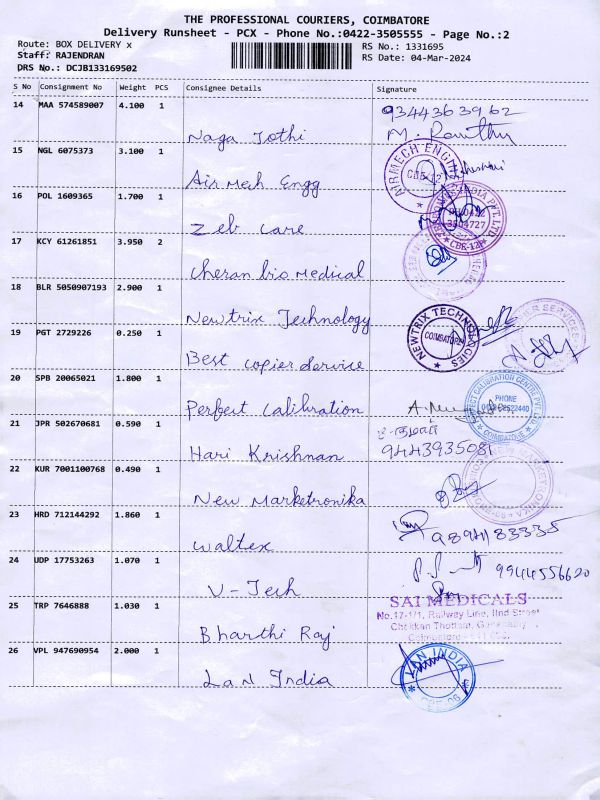 THE PROFESSIONAL COURIERS, COIMBATORE
Delivery Runsheet - PCX - Phone No.:0422-3505555 - Page No.:2
Route: BOX DELIVERY x
Staff: RAJENDRAN
DRS No.: DCJB133169502
RS No.: 1331695
RS Date: 04-Mar-2024
S No Consignment No Weight PCS Consignee Details Signature
14 MAA 574589007 4.100 1
9344363962
Naga Jothi
15 NGL 6075373 3.100 1
AIRMECH ENGI
CBE-12
Air Mech Engg
16 POL 1609365 1.700 1
INDIA PVT. LTD.
3504727
CBE-12
Zeb Care
17 KCY 61261851 3.950 2
Cheran bio Medical
18 BLR 5050907193 2.900 1
NEWTRIX TECHNOLOGIES
COIMBATORE
Newtrix Technology
19 PGT 2729226 0.250 1
Best copier service
20 SPB 20065021 1.800 1
PERFECT CALIBRATION CENTRE PVT. LTD.
PHONE
2522440
COIMBATORE
Perfect Calibration
21 JPR 502670681 0.590 1
9443935081
Hari Krishnan
22 KUR 7001100768 0.490 1
NEW MARKETRONIKA
New Marketronika
23 HRD 712144292 1.860 1
9894183335
Waltex
24 UDP 17753263 1.070 1
9944556620
V-Tech
25 TRP 7646888 1.030 1
SAI MEDICALS
No.17-1/1, Railway Line, IInd Street
Chekkan Thottam,
Bharthi Raj
26 VPL 947690954 2.000 1
LAN INDIA
CBE-06
Lan India